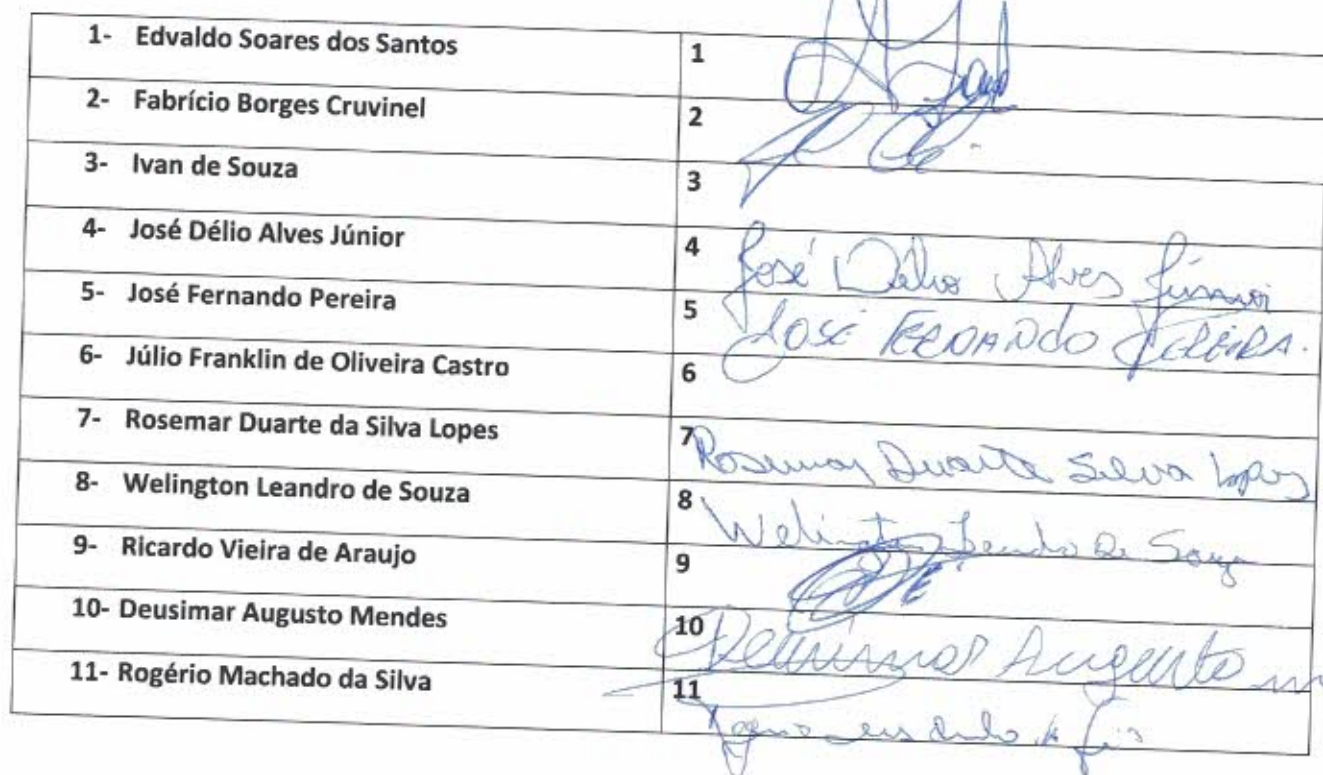 1- Edvaldo Soares dos Santos 1
2- Fabrício Borges Cruvinel 2
3- Ivan de Souza 3
4- José Délio Alves Júnior 4 José Délio Alves Júnior
5- José Fernando Pereira 5 JOSÉ FERNANDO PEREIRA.
6- Júlio Franklin de Oliveira Castro 6
7- Rosemar Duarte da Silva Lopes 7 Rosemar Duarte Silva Lopes
8- Welington Leandro de Souza 8 Welington Leandro de Souza
9- Ricardo Vieira de Araujo 9
10- Deusimar Augusto Mendes 10 Deusimar Augusto
11- Rogério Machado da Silva 11